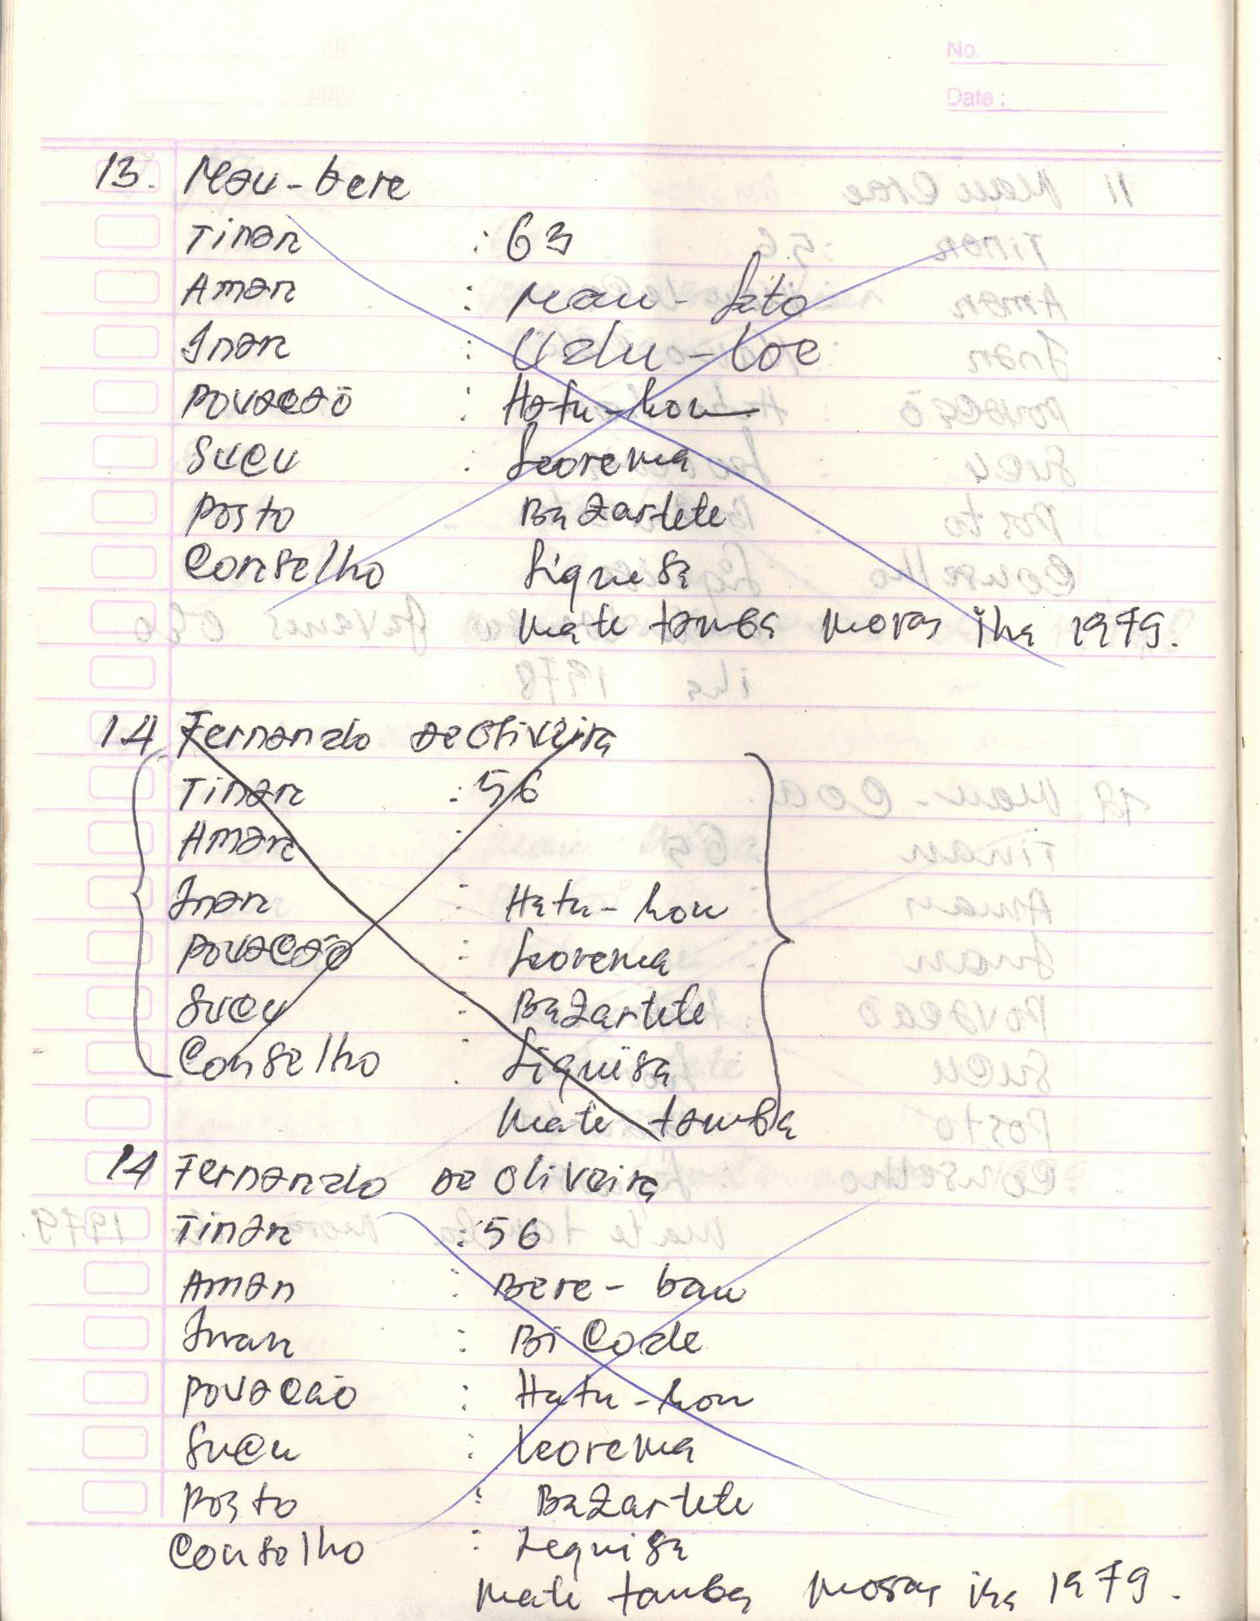 No.
Date:
13. Mau-bere
Tinan : 63
Aman : Mau-
Inan :
Povacaõ : Hatu-kou
Sucu : Leorema
Posto Bazartete
Conselho Liquisa
mate tamba moras iha 1979.
14 Fernando de Oliveira
Tinan : 56
Aman :
Inan : Hatu-kou
Povacaõ : Leorema
Sucu : Bazartete
Conselho : Liquisa
mate tamba
14 Fernando de Oliveira
Tinan : 56
Aman : Bere-bau
Inan : Bi Code
Povacaõ : Hatu-kou
Sucu : Leorema
Posto : Bazartete
Conselho : Lequisa
mate tamba moras iha 1979.